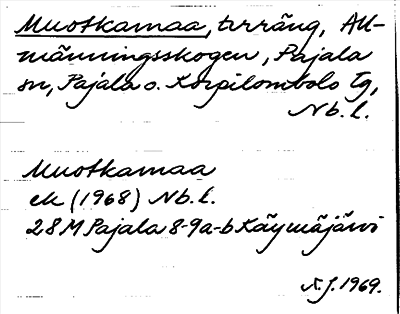 Muotkamaa, terräng, All-
männingsskogen, Pajala
sn, Pajala o. Korpilombolo tg,
Nb. l.
Muotkamaa
ek (1968) Nb. l.
28M Pajala 8-9a-b Käymäjärvi
N.J. 1969.